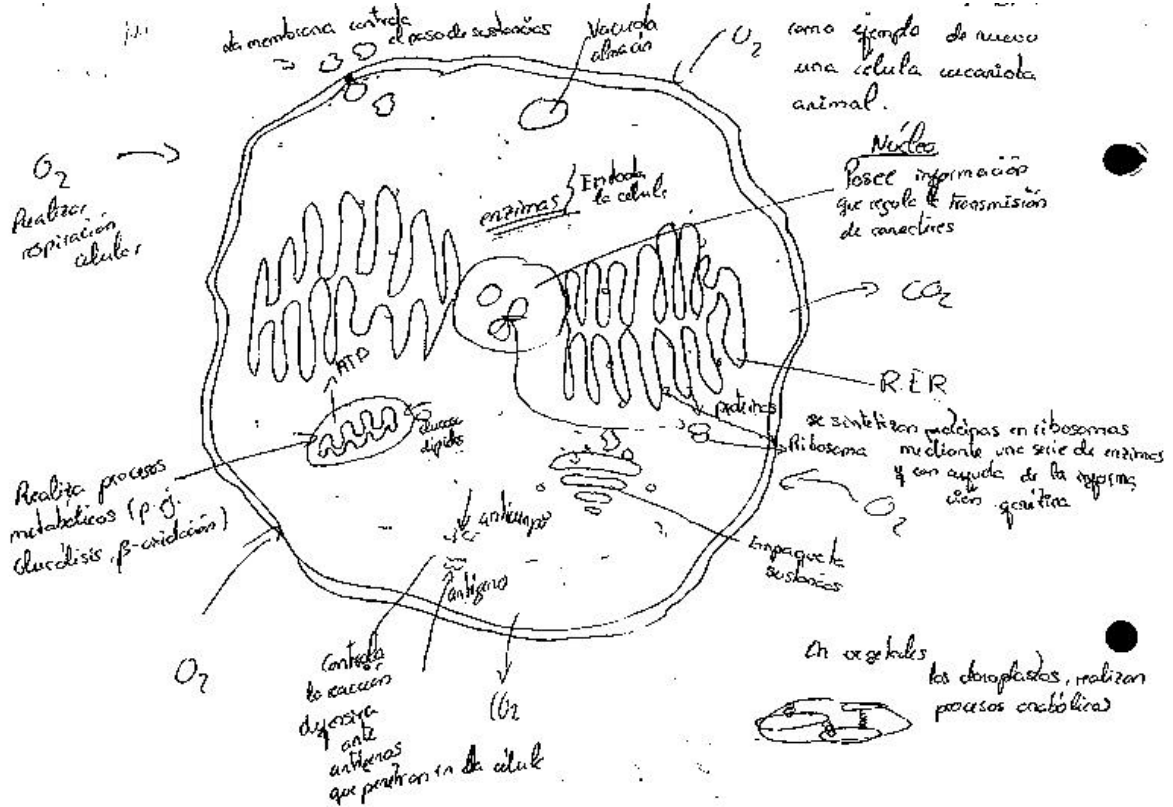 La membrana controla
el paso de sustancias
Vacuola
almacén
O2
como ejemplo de nuevo
una célula eucariota
animal.
O2
Realizar
respiración
celular
enzimas } En toda
la célula
Núcleo
Posee información
que regula la transmisión
de caracteres
CO2
R.E.R
ATP
glucosa
lípidos
proteínas
Ribosoma
se sintetizan proteínas en ribosomas
mediante una serie de enzimas
y con ayuda de la informa
ción genética
O2
Realiza procesos
metabólicos (p. ej.
Glucólisis, β-oxidación)
anticuerpo
antígeno
Empaqueta
sustancias
O2
Controla
la reacción
defensiva
ante
antígenos
que penetran en la célula
CO2
En vegetales
los cloroplastos, realizan
procesos anabólicos